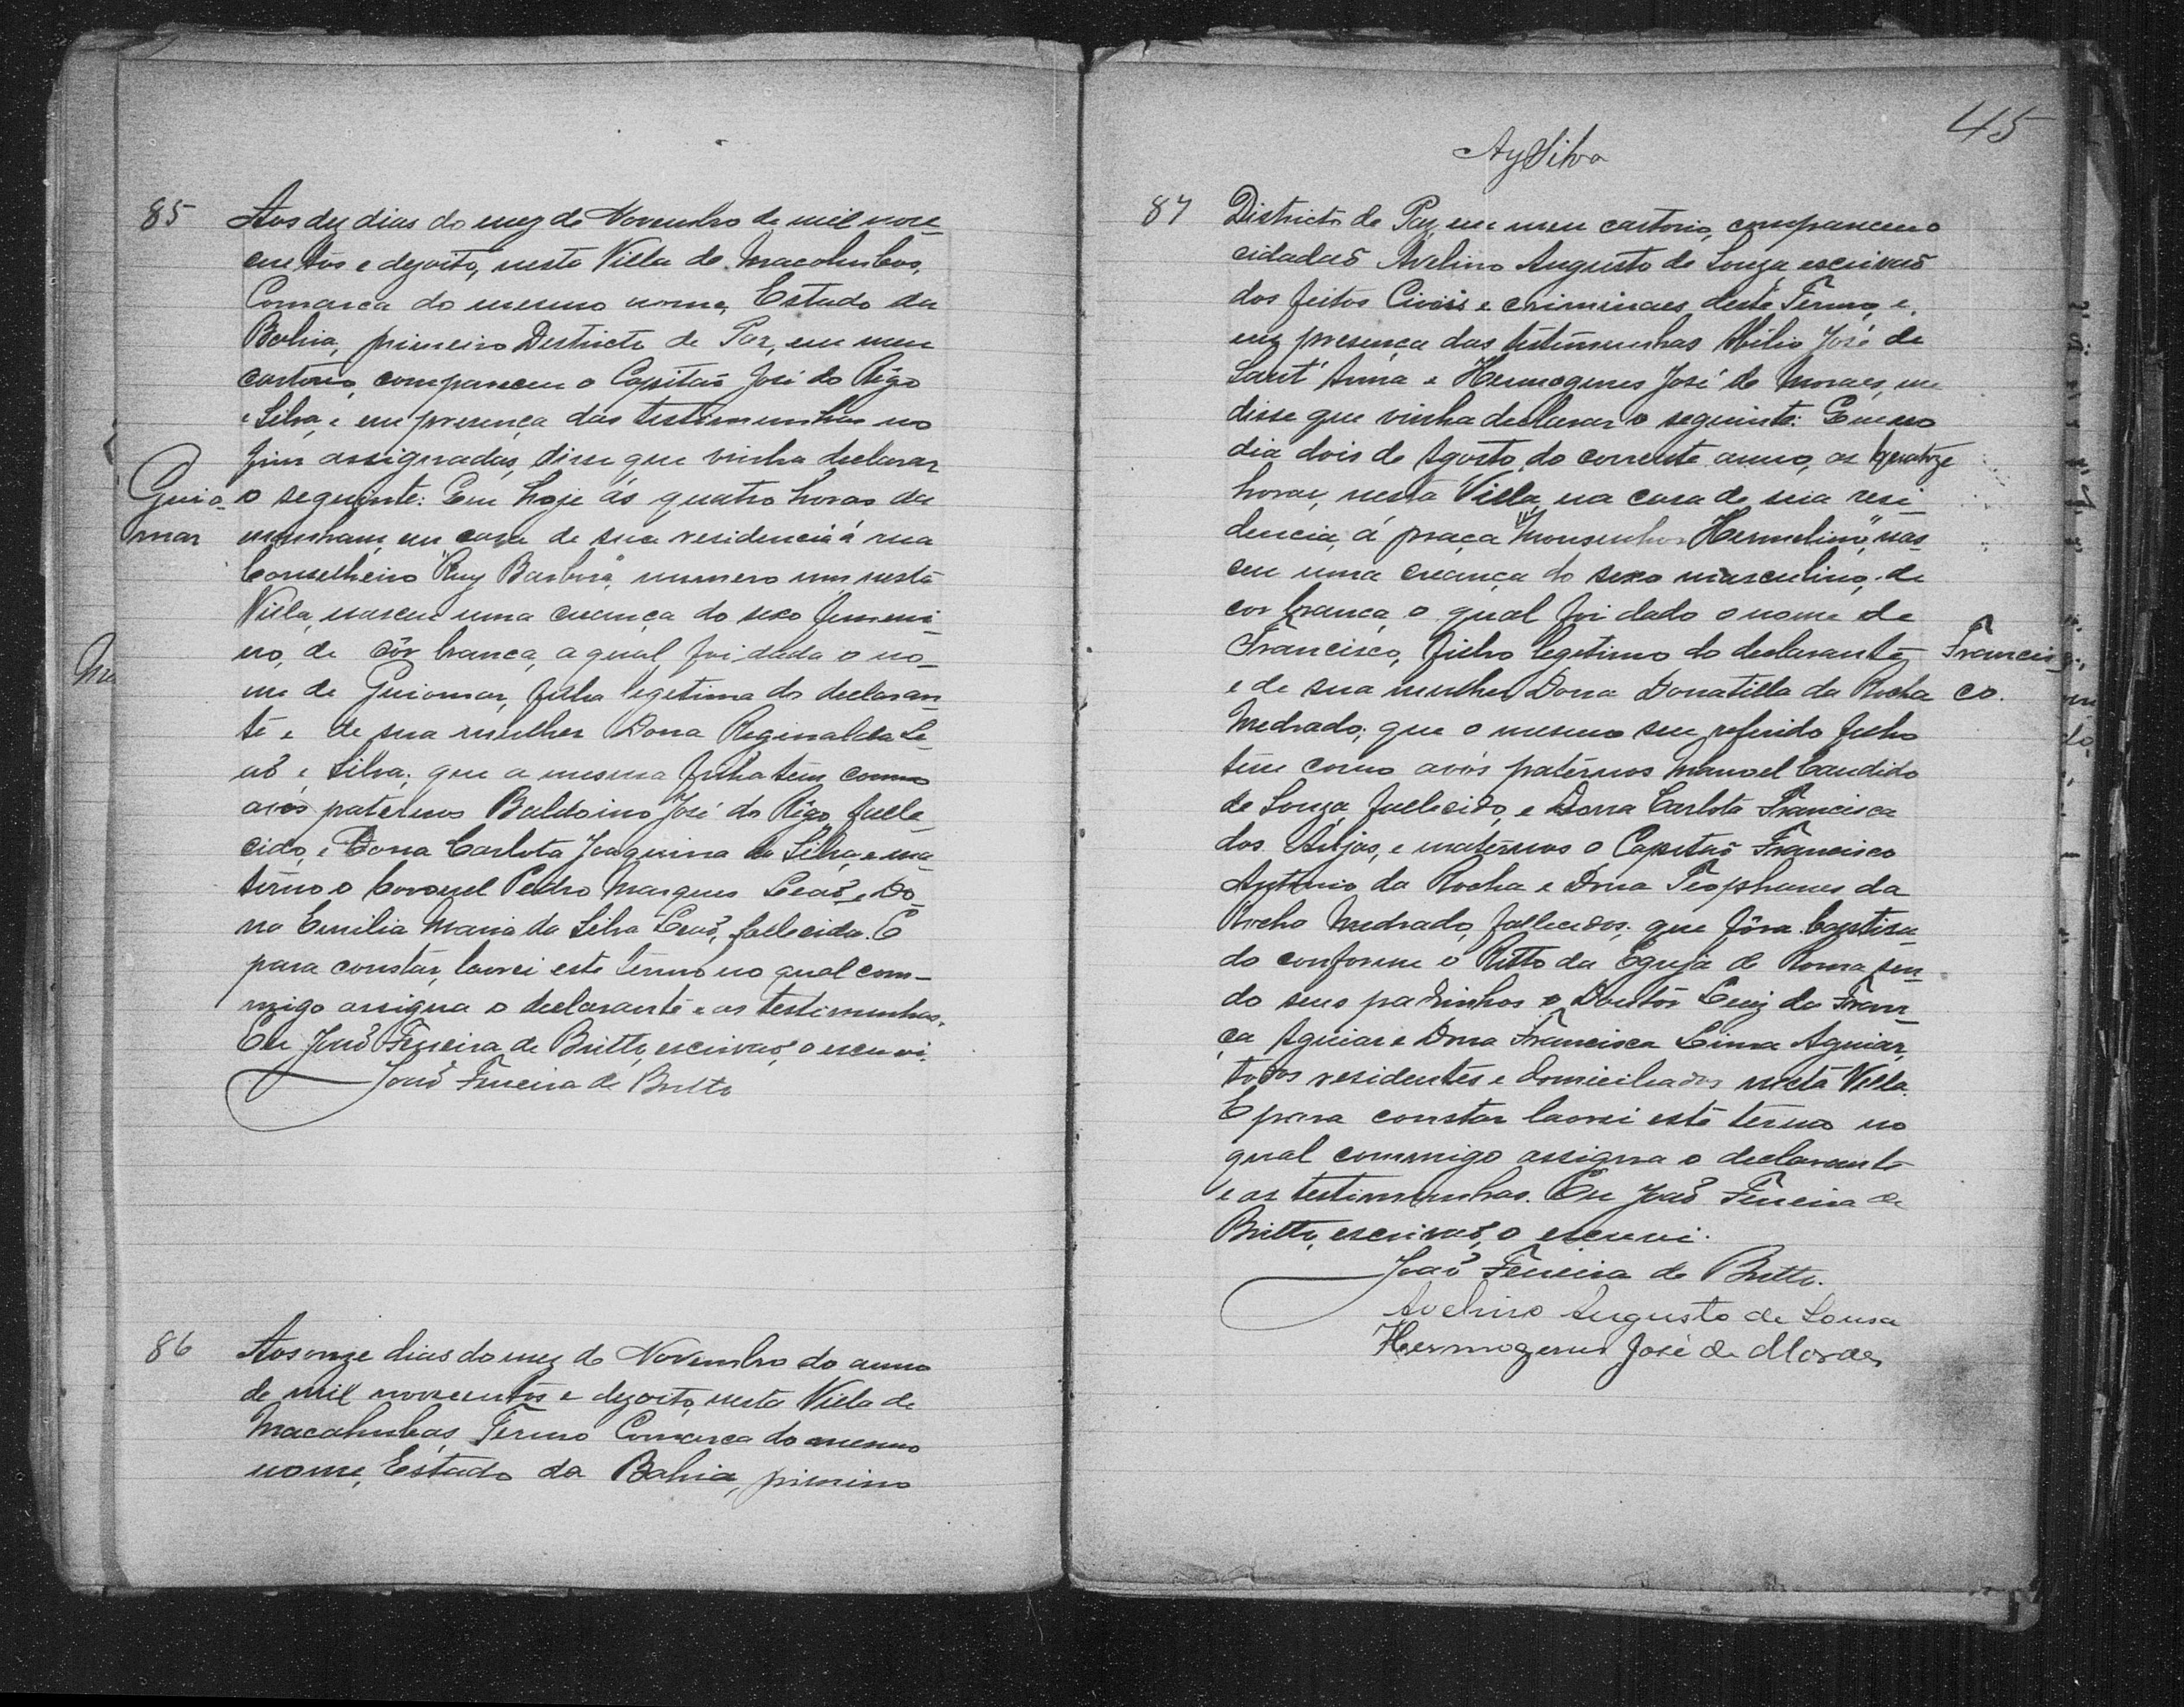 85
Aos dez dias do mez de Novembro de mil nove-
centos e dezoito, nesta Villa de Macahubas,
Comarca do mesmo nome, Estado da
Bahia, primeiro Districto de Paz, em meu
cartorio, compareceu o Capitaõ José do Rêgo
e Silva, e em presença das testimunhas no
fim assignadas, disse que vinha declarar
o seguinte: Que hoje ás quatro horas da
manham, em casa de sua residencia á rua
Conselheiro "Ruy Barbosa", numero um nesta
Villa, nasceu uma creança do sexo femeni-
no, de côr branca, a qual foi dado o no-
me de Guiomar, filha legitima do declaran-
te e de sua mulher Dona Reginalda Le-
aõ e Silva; que a mesma filha tem como
avós paternos Baldoino José do Rêgo, falle-
cido, e Dona Carlota Joaquina da Silva, e ma-
terno o Coronel Pedro Marques Leaõ, e Do-
na Emilia Maria da Silva Leaõ, fallecida. E
para constar, lavrei este termo no qual com-
migo assigna o declarante e as testimunhas.
Eu Joaõ Ferreira de Britto, escrivaõ, o escrevi.
Joaõ Ferreira de Britto
Guio-
mar
86
Aos onze dias do mez de Novembro do anno
de mil novecentos e dezoito, nesta Villa de
Macahubas, Termo Comarca do mesmo
nome, Estado da Bahia, primeiro
45
AySilva
87
Districto de Paz, em meu cartorio, compareceu o
cidadaõ Avelino Augusto de Souza escrivaõ
dos feitos Civeis e criminaes deste Termo, e,
em presença das testimunhas Abilio José de
Sant'Anna e Hermogenes José de Moraes, me
disse que vinha declarar o seguinte: Que no
dia dois de Agosto do corrente anno, as quatorze
horas, nesta Villa, na casa de sua resi-
dencia, á praça "Monsenhor Hermelino", nas-
ceu uma creança do sexo masculino, de
cor branca, o qual foi dado o nome de
Francisco, filho legitimo do declarante
e de sua mulher Dona Donatilla da Rocha
Medrado; que o mesmo seu referido filho
tem como avós paternos Manoel Candido
de Souza, fallecido, e Dona Carlota Francisca
dos Anjos, e maternos o Capitaõ Francisco
Antonio da Rocha e Dona Teophanes da
Rocha Medrado, fallecidos; que fôra baptisa-
do conforme o Ritto da Egreja de Roma sen-
do seus padrinhos o Doutôr Luiz da Fran-
ça Aguiar e Dona Francisca Lima Aguiar,
todos residentes e domiciliados nesta Villa.
E para constar lavrei este termo no
qual commigo assigna o declarante
e as testimunhas. Eu Joaõ Ferreira de
Britto, escrivaõ, o escrevi.
Joaõ Ferreira de Britto.
Avelino Augusto de Sousa
Hermogenes José de Moraes
Francis-
co.